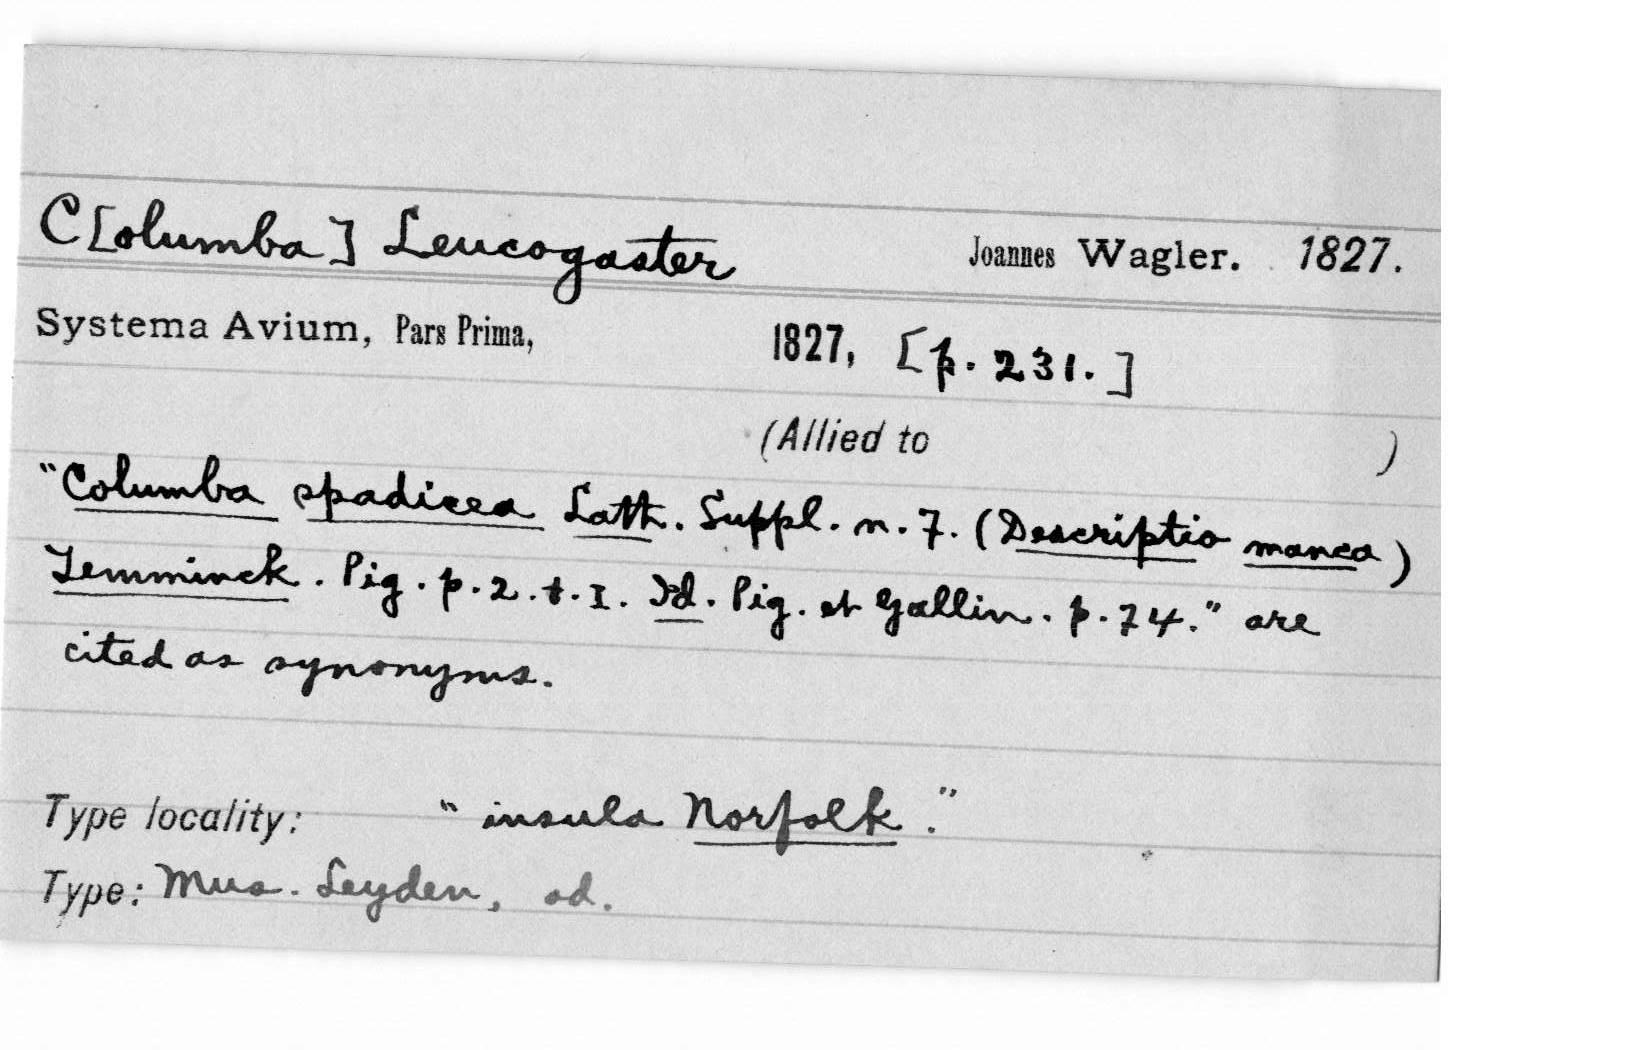 C[olumba] Leucogaster Joannes Wagler. 1827.
Systema Avium, Pars Prima, 1827, [p. 231.]
(Allied to )
"Columba spadicea Lath. Suppl. n. 7. (Descriptio manca)
Temminck. Pig. p. 2. t. I. Id. Pig. et Gallin. p. 74." are
cited as synonyms.
Type locality: "insula Norfolk."
Type: Mus. Leyden, ad.